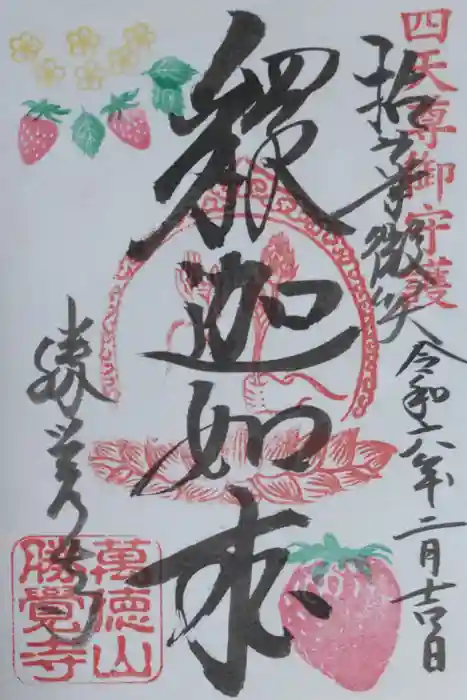 四天尊御守護
拈華微笑
令和六年二月吉日
釈迦如来
勝覚寺
萬徳山
勝覺寺